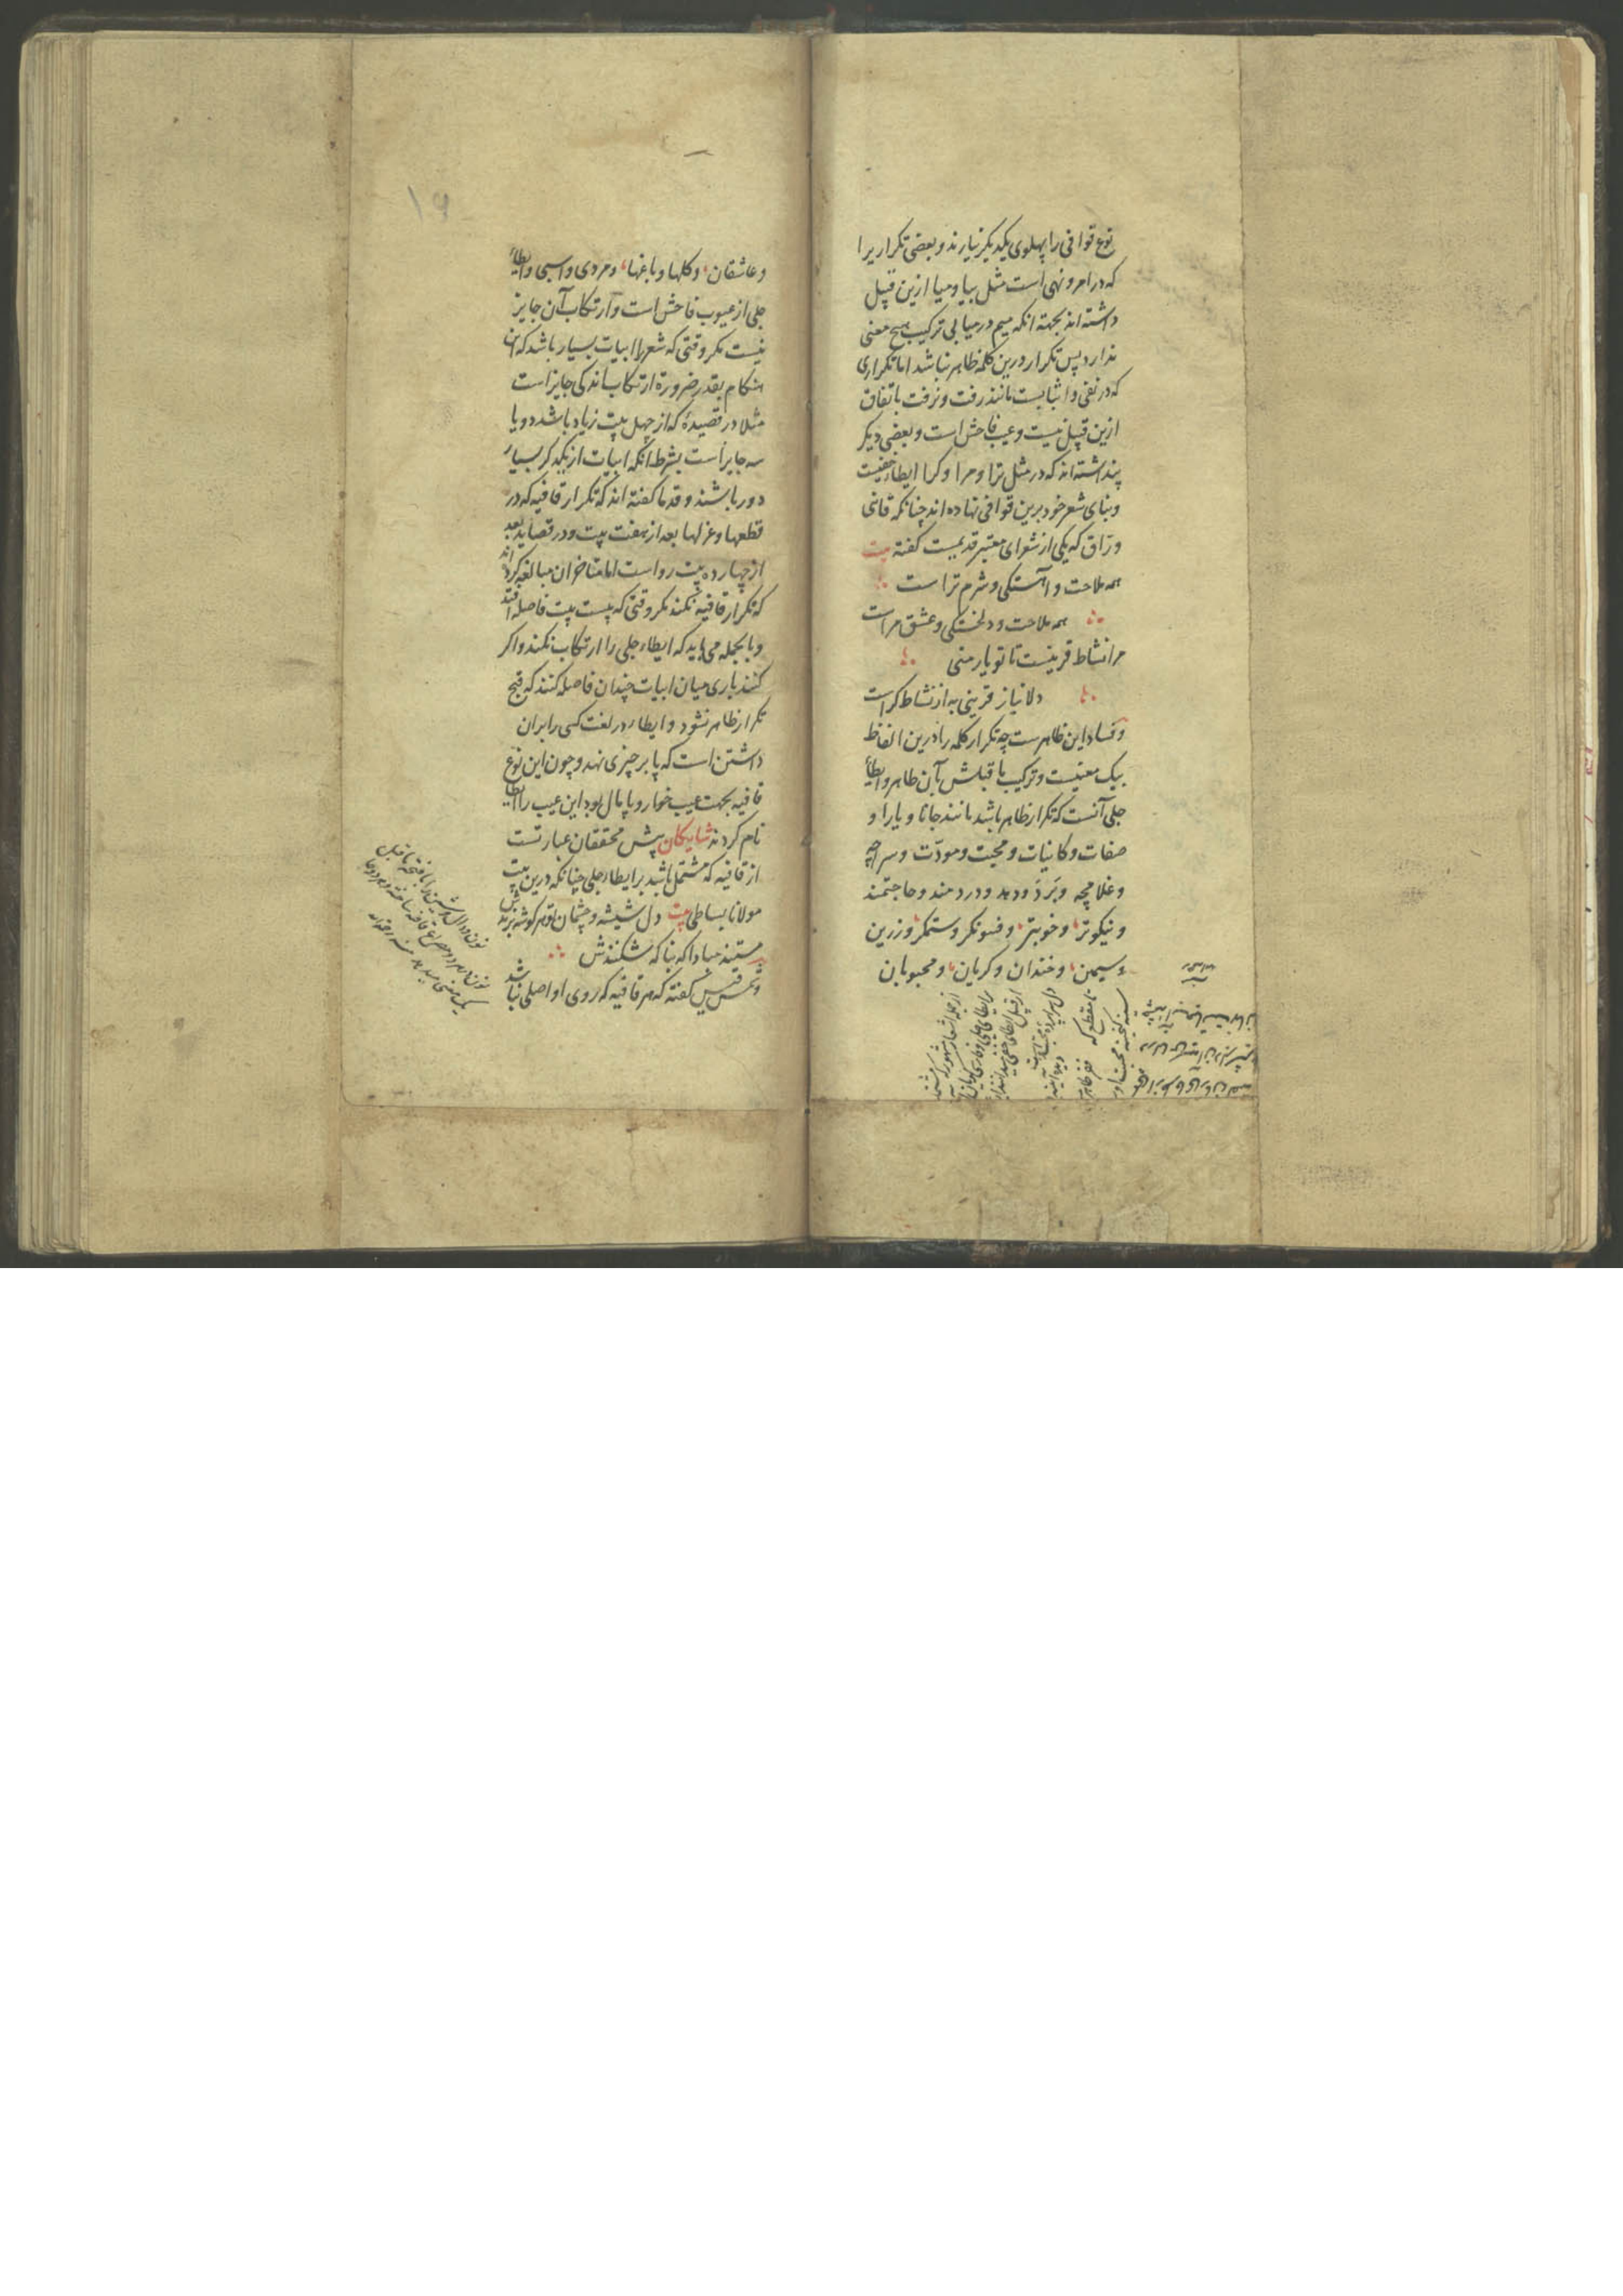 نوع قوافی را پهلوی یکدیگر نیارند و بعضی تکراریرا
که در امر و نهی است مثل بیا و میا ازین قبیل
داشته اند بجهته انکه میم در میا بی ترکیب هیچ معنی
ندارد پس تکرار درین کلمه ظاهر نباشد اما تکراری
که در نفی و اثباتست مانند رفت و نرفت باتفاق
ازین قبیل نیست و عیب فاحش است و بعضی دیکر
پنداشته اند که در مثل ترا و مرا و کرا ایطاء خفیست
و بنای شعر خود برین قوافی نهاده اند چنانکه قاضی
ورّاق که یکی از شعرای معتبر قدیمست کفته بیت
همه ملاحت و آهستکی و شرم تراست
همه ملاحت و دلخستکی و عشق مراست
مرا نشاط قرینست تا تو یار منی
دلا نیاز قرینی به از نشاط کراست
و فساد این ظاهرست چه تکرار کلمه را درین الفاظ
بیک معنیست و ترکیب ما قبلش بآن ظاهر و ایطاء
جلی آنست که تکرار ظاهر باشد مانند جانا و یارا و
صفات و کاینات و محبت و مودّت و سراچه
و غلامچه و بَرَد و دهد و دردمند و حاجتمند
و نیکوتر و خوبتر و فسونکر و ستمکر و زرین
و سیمین و خندان و کریان و محبوبان
۱۹
و عاشقان و کلها و باغها و مردی و اسبی و ایطاء
جلی از عیوب فاحش است و ارتکاب آن جایز
نیست مکر وقتی که شعر را ابیات بسیار باشد که آن
هنکام بقدر ضرورة ارتکاب اندکی جایز است
مثلا در قصیدهٔ که از چهل بیت زیاد باشد دو یا
سه جایز است بشرط انکه ابیات از یکدکر بسیار
دور باشند و قدما کفته اند که تکرار قافیه که در
قطعها و غزلها بعد از هفت بیت و در قصاید بعد
از چهارده بیت رواست اما متاخران مبالغه کرده اند
که تکرار قافیه نکنند مکر وقتی که بیست بیت فاصله افتد
و بالجمله می باید که ایطاء جلی را ارتکاب نکنند و اکر
کنند باری میان ابیات چندان فاصله کنند که قبح
تکرار ظاهر نشود و ایطاء در لغت کسی را بران
داشتن است که پا بر چیزی نهد و چون این نوع
قافیه بجهت عیب خوار و پایمال بود این عیب را ایطا
نام کردند شایکان پیش محققان عبارتست
از قافیه که مشتمل باشد بر ایطاء جلی چنانکه درین بیت
مولانا بساطی بیت دل شیشه و چشمان تو هر کوشه برندش
مستند مبادا که بناکه شکنندش
و شمس قیس کفته که هر قافیه که روی او اصلی نباشد